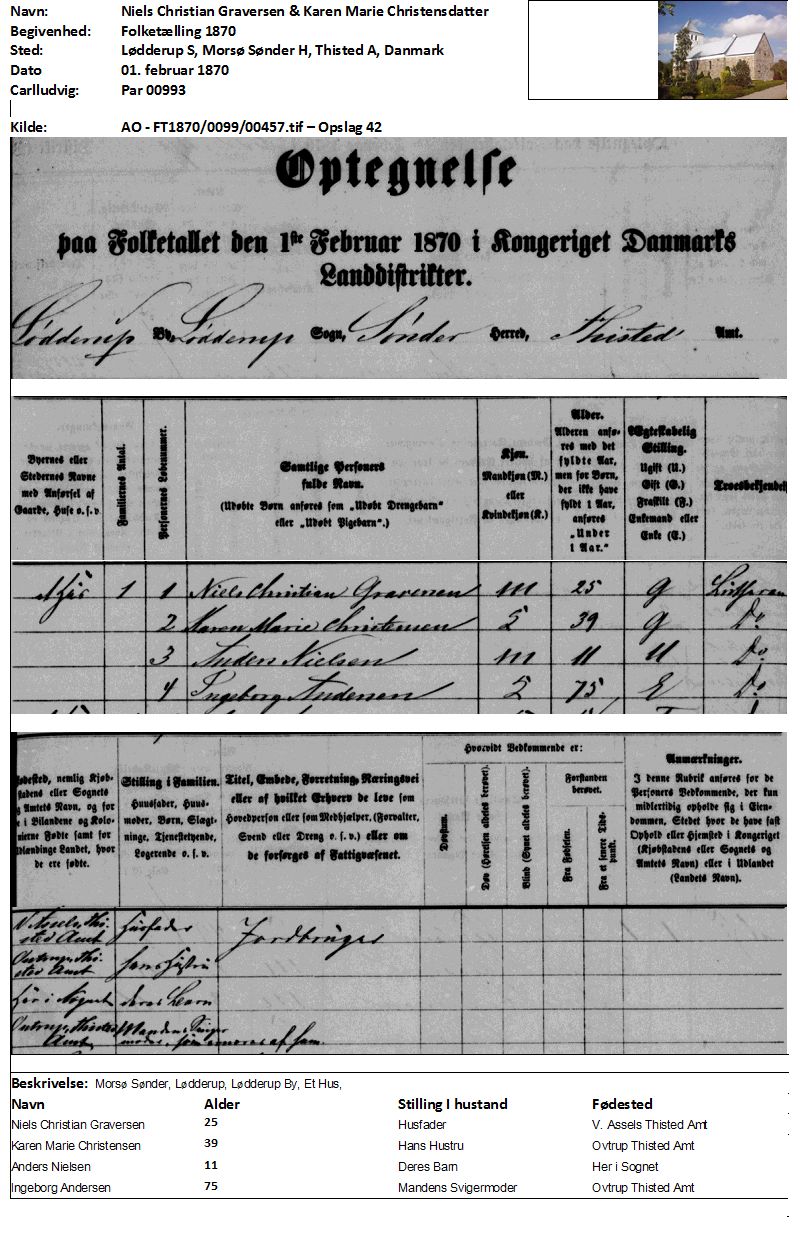 Navn: Niels Christian Graversen & Karen Marie Christensdatter
Begivenhed: Folketælling 1870
Sted: Lødderup S, Morsø Sønder H, Thisted A, Danmark
Dato 01. februar 1870
Carlludvig: Par 00993
Kilde: AO - FT1870/0099/00457.tif – Opslag 42
Optegnelse
paa Folketallet den 1ste Februar 1870 i Kongeriget Danmarks
Landdistrikter.
Lødderup By, Lødderup Sogn, Sønder Herred, Thisted Amt.
Byernes eller
Stedernes Navne
med Anførsel af
Gaarde, Huse o. s. v.
Familiernes Antal.
Personernes Løbenummer.
Samtlige Personers
fulde Navn.
(Udøbte Børn anføres som „Udøbt Drengebarn"
eller „Udøbt Pigebarn".)
Kjøn.
Mandkjøn (M.)
eller
Kvindekjøn (K.)
Alder.
Alderen anfø-
res med det
fyldte Aar,
men for Børn,
der ikke have
fyldt 1 Aar,
anføres
„Under
1 Aar."
Ægteskabelig
Stilling.
Ugift (U.)
Gift (G.)
Fraskilt (F.)
Enkemand eller
Enke (E.)
Troesbekjendels
1 1 Niels Christian Graversen M 25 G Lutheran
2 Karen Marie Christensen K 39 G Do
3 Anders Nielsen M 11 U Do
4 Ingeborg Andersen K 75 E Do
Fødested, nemlig Kjøb-
stadens eller Sognets
og Amtets Navn, og for
de i Bilandene og Kolo-
nierne Fødte samt for
Udlændinge Landet, hvor
de ere fødte.
Stilling i Familien.
Huusfader, Huus-
moder, Børn, Slægt-
ninge, Tjenestetyende,
Logerende o. s. v.
Titel, Embede, Forretning, Næringsvei
eller af hvilket Erhverv de leve som
Hovedperson eller som Medhjælper, (Forvalter,
Svend eller Dreng o. s. v.) eller om
de forsørges af Fattigvæsenet.
Hvorvidt Vedkommende er:
Døvstum.
Døv (Hørelsen aldeles berøvet).
Blind (Synet aldeles berøvet).
Forstanden
berøvet.
Fra Fødselen.
Fra et senere Tids-
punkt.
Anmærkninger.
I denne Rubrik anføres for de
Personers Vedkommende, der kun
midlertidig opholde sig i Eien-
dommen, Stedet hvor de have fast
Ophold eller Hjemsted i Kongeriget
(Kjøbstadens eller Sognets og
Amtets Navn) eller i Udlandet
(Landets Navn).
V. Assels, Thi-
sted Amt Husfader Jordbruger
Outrup, Thi-
sted Amt hans Hustru
Her i Sognet deres Barn
Outrup, Thisted
Amt. Mandens Sviger
moder, som ernæres af ham.
Beskrivelse: Morsø Sønder, Lødderup, Lødderup By, Et Hus,
Navn Alder Stilling I hustand Fødested
Niels Christian Graversen 25 Husfader V. Assels Thisted Amt
Karen Marie Christensen 39 Hans Hustru Ovtrup Thisted Amt
Anders Nielsen 11 Deres Barn Her i Sognet
Ingeborg Andersen 75 Mandens Svigermoder Ovtrup Thisted Amt